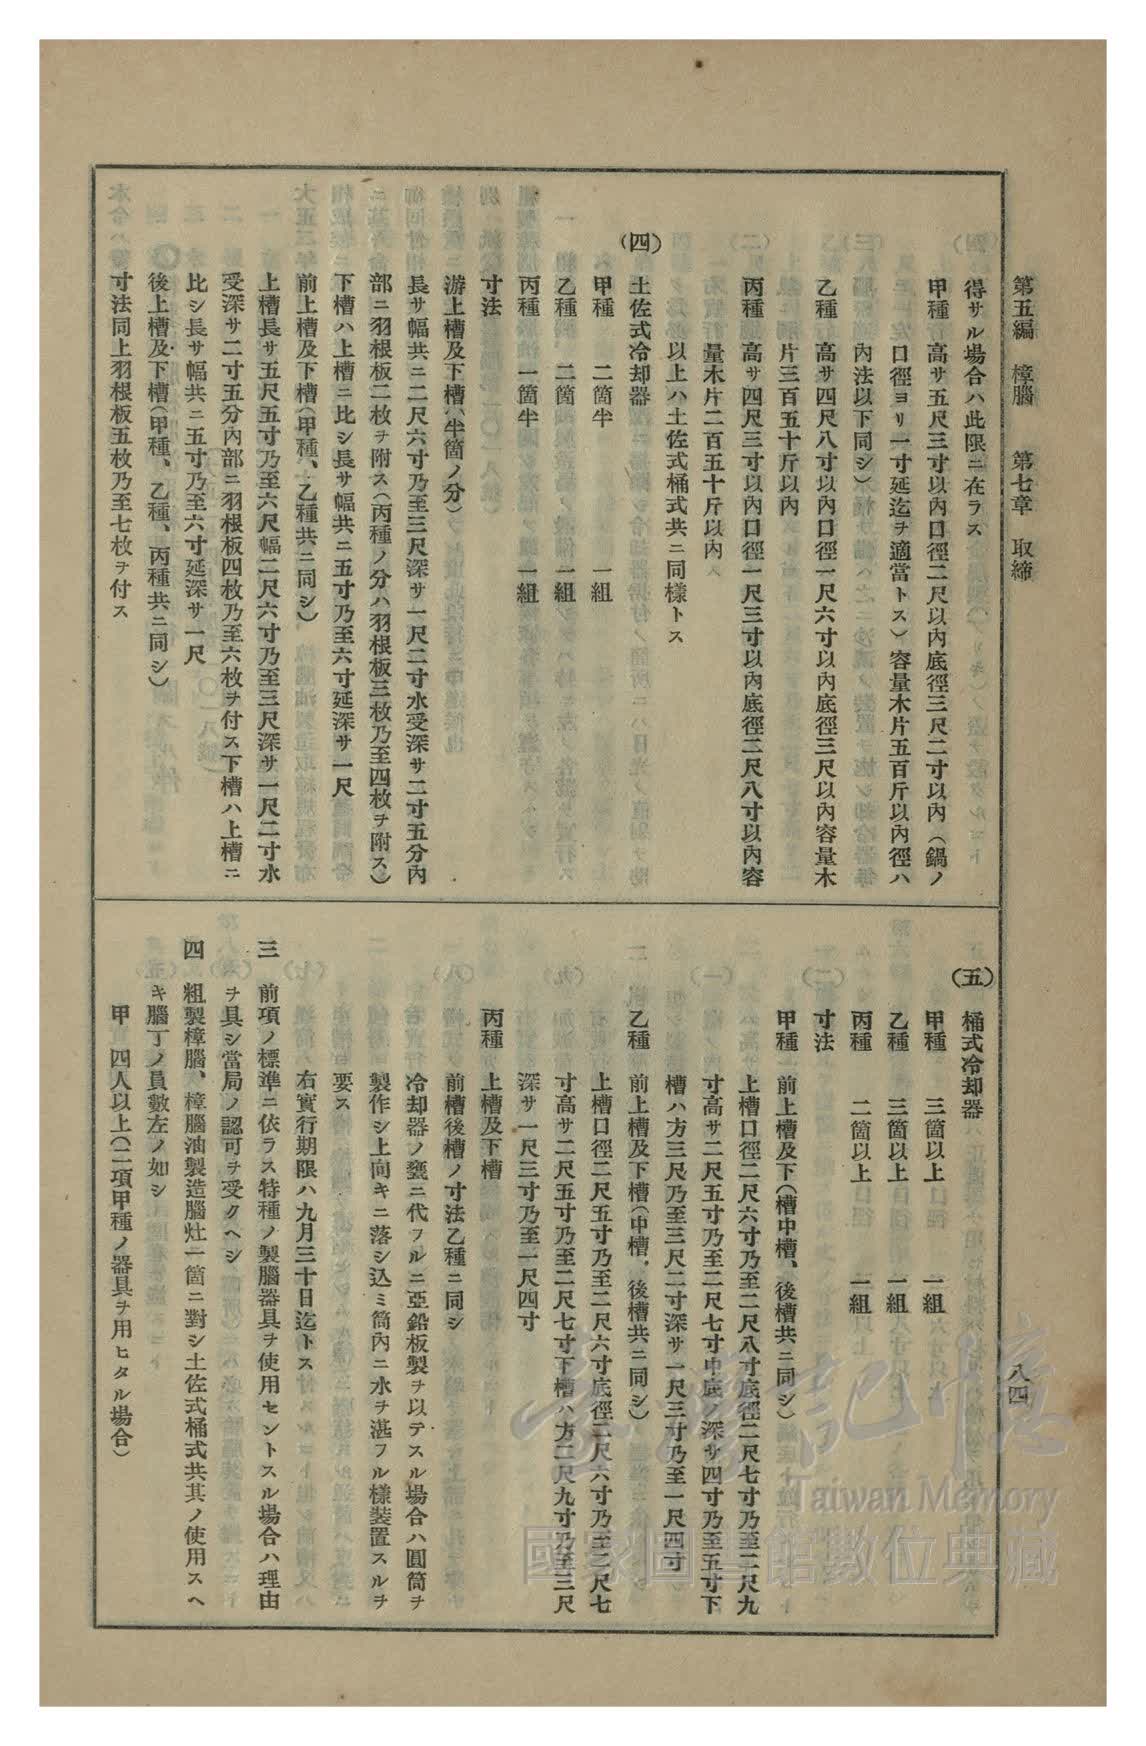 第五編　樟腦　　第七章　取締
八四
得サル場合ハ此限ニ在ラス
甲種　高サ五尺三寸以內口徑二尺以內底徑三尺二寸以內（鍋ノ
口徑ヨリ一寸延迄ヲ適當トス）容量木片五百斤以內徑ハ
內法以下同シ）
乙種　高サ四尺八寸以內口徑一尺六寸以內底徑三尺以內容量木
片三百五十斤以內
丙種　高サ四尺三寸以內口徑一尺三寸以內底徑二尺八寸以內容
量木片二百五十斤以內
以上ハ土佐式桶式共ニ同樣トス
（四）　土佐式冷却器
甲種　二箇半　一組
乙種　二箇　一組
丙種　一箇半　一組
寸法
游上槽及下槽（半箇ノ分）
長サ幅共ニ二尺六寸乃至三尺深サ一尺二寸水受深サ二寸五分內
部ニ羽根板二枚ヲ附ス（丙種ノ分ハ羽根板三枚乃至四枚ヲ附ス）
下槽ハ上槽ニ比シ長サ幅共ニ五寸乃至六寸延深サ一尺
前上槽及下槽（甲種、乙種共ニ同シ）
上槽長サ五尺五寸乃至六尺幅二尺六寸乃至三尺深サ一尺二寸水
受深サ二寸五分內部ニ羽根板四枚乃至六枚ヲ付ス下槽ハ上槽ニ
比シ長サ幅共ニ五寸乃至六寸延深サ一尺
後上槽及下槽（甲種、乙種、丙種共ニ同シ）
寸法同上羽根板五枚乃至七枚ヲ付ス
（五）　桶式冷却器
甲種　三箇以上　一組
乙種　三箇以上　一組
丙種　二箇以上　一組
寸法
甲種　前上槽及下（槽中槽、後槽共ニ同シ）
上槽口徑二尺六寸乃至二尺八寸底徑二尺七寸乃至二尺九
寸高サ二尺五寸乃至二尺七寸中底ノ深サ四寸乃至五寸下
槽ハ方三尺乃至三尺二寸深サ一尺三寸乃至一尺四寸
乙種　前上槽及下槽（中槽、後槽共ニ同シ）
上槽口徑二尺五寸乃至二尺六寸底徑二尺六寸乃至二尺七
寸高サ二尺五寸乃至二尺七寸下槽ハ方二尺九寸乃至三尺
深サ一尺三寸乃至一尺四寸
丙種　上槽及下槽
前槽後槽ノ寸法乙種ニ同シ
冷却器ノ甕ニ代フルニ亞鉛板製ヲ以テスル場合ハ圓筒ヲ
製作シ上向キニ落シ込ミ筒內ニ水ヲ湛フル樣裝置スルヲ
要ス
右實行期限ハ九月三十日迄トス
三　前項ノ標準ニ依ラス特種ノ製腦器具ヲ使用セントスル場合ハ理由
ヲ具シ當局ノ認可ヲ受クヘシ
四　粗製樟腦、樟腦油製造腦灶一箇ニ對シ土佐式桶式共其ノ使用スヘ
キ腦丁ノ員數左ノ如シ
甲　四人以上（二項甲種ノ器具ヲ用ヒタル場合）
臺灣記憶
Taiwan Memory
國家圖書館數位典藏